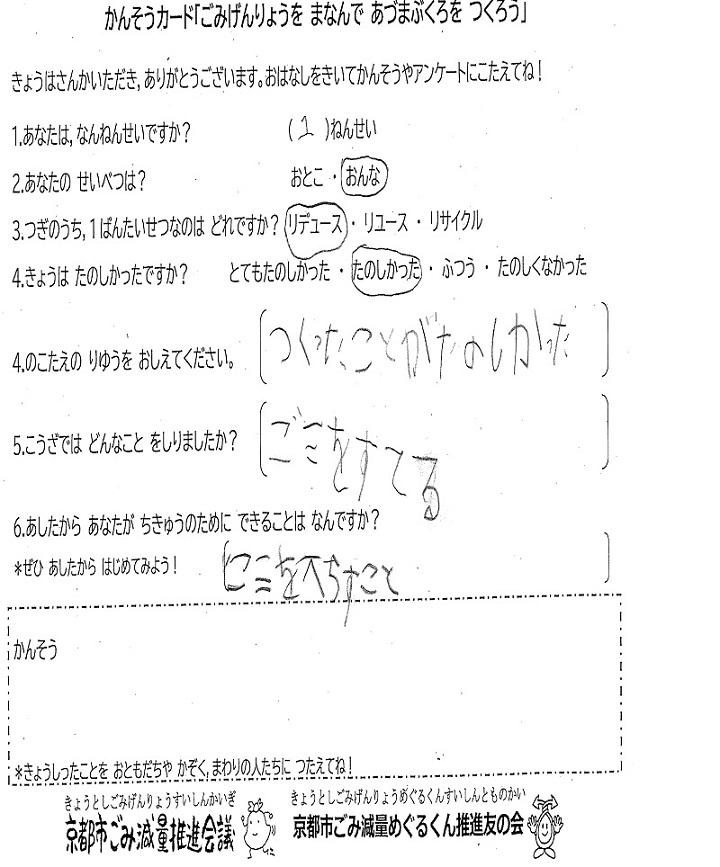 かんそうカード「ごみげんりょうを まなんで あづまぶくろを つくろう」
きょうはさんかいただき,ありがとうございます。おはなしをきいてかんそうやアンケートにこたえてね！
1.あなたは,なんねんせいですか？ (1)ねんせい
2.あなたの せいべつは？ おとこ ・ おんな
3.つぎのうち,1ばんたいせつなのは どれですか？ リデュース ・ リユース ・ リサイクル
4.きょうは たのしかったですか？ とてもたのしかった ・ たのしかった ・ ふつう ・ たのしくなかった
4.のこたえの りゆうを おしえてください。 つくったことがたのしかった
5.こうざでは どんなこと をしりましたか？ ごミをすてる
6.あしたから あなたが ちきゅうのために できることは なんですか？
*ぜひ あしたから はじめてみよう！ をへらすこと
かんそう
*きょうしったことを おともだちや かぞく,まわりの人たちに つたえてね！
きょうとしごみげんりょうすいしんかいぎ
京都市ごみ減量推進会議
きょうとしごみげんりょうめぐるくんすいしんとものかい
京都市ごみ減量めぐるくん推進友の会